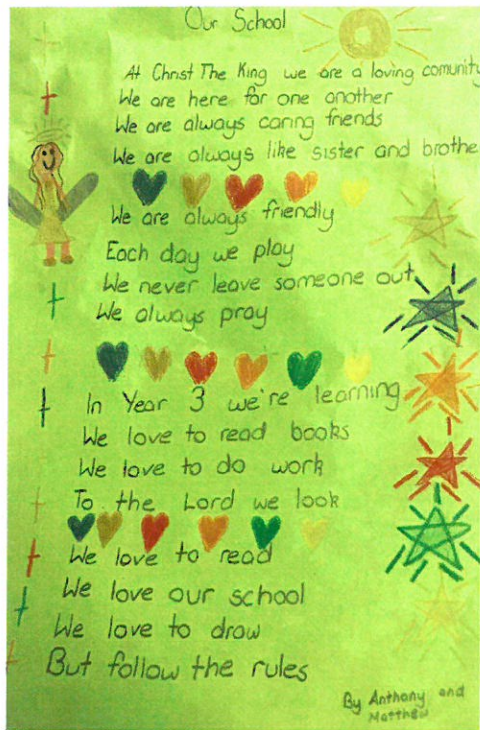 Our School
At Christ The King we are a loving comunity
We are here for one another
We are always caring friends
We are always like sister and brothe
We are always friendly
Each day we play
We never leave someone out
We always pray
In Year 3 we're learning
We love to read books
We love to do work
To the Lord we look
We love to read
We love our school
We love to draw
But follow the rules
By Anthony and
Matthew